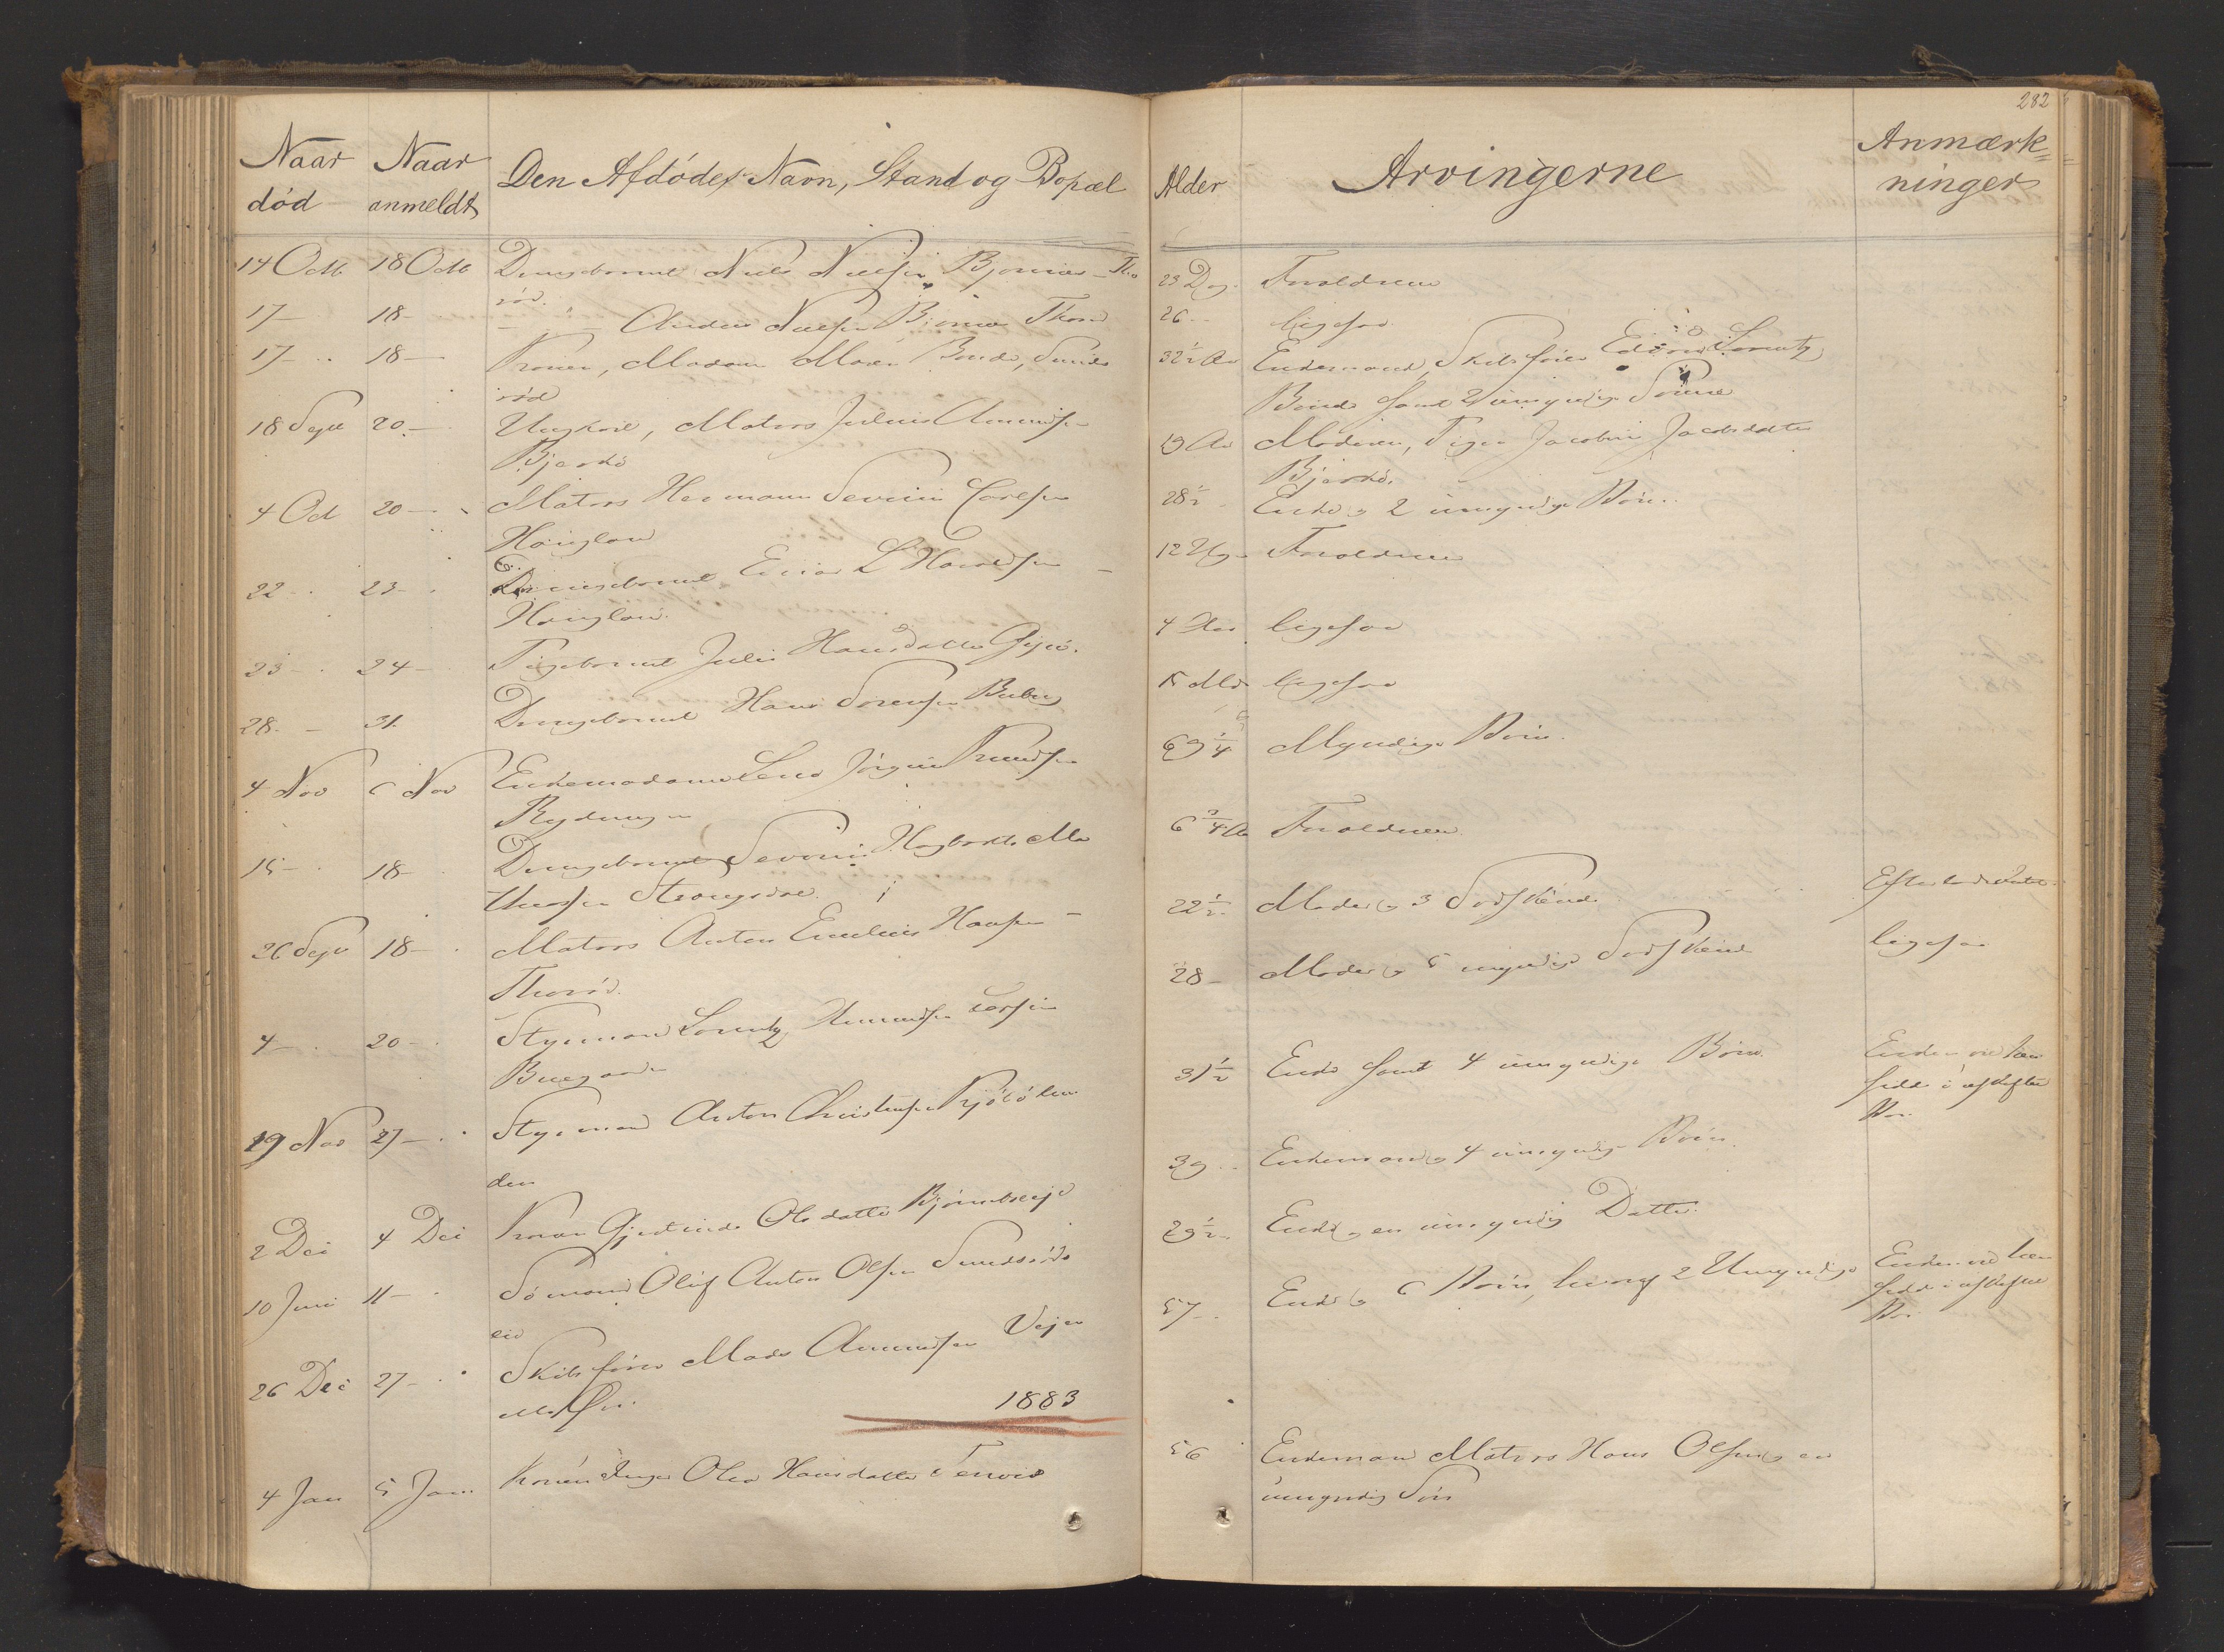 282
Naar død
Naar anmeldt
Den Afdødes Navn, Stand og Bopæl
Alder
Arvingerne
Anmærk=
ninger
14 Octb 18 Octb Drengebarnet Niels Nielsen Bjønnes - Tho
rød.
23 Dg. Forældrene
17 — 18 - — " Anders Nielsen Bjønnes Thorød
26 — ligesaa
17 — 18 — Konen, Madam Maren Bonde, Sunde
rød
32 1/2 Aar Enkemand, Skibsfører Edvard Lorentz
Bonde samt 2 umyndige Sønner
18 Sept 20 — Ungkarl, Matros Julius Amundsen
Bjerkø
19 Aar Moderen, Pige Jacobine Jacobsdatter
Bjerkø.
4 Oct 20 — Matros Hermann Severin Carlsen
Høiglou
28 1/2 Enke og 2 umyndige Børn.
22 — 23 — Drengebarnet Einar L Haraldsen -
Høiglou.
12 Ug. Forældrene
23 — 24 — Pigebarnet Julie Hansdatter Gipø.
4 Aar ligesaa
28 — 31. Drengebarnet Hans Sørensen
15 Md ligesaa
4 Nov 6 Nov Enkemadame Lena Jørgine Knudsen
Rydningen
69 1/4 Myndige Børn.
15 — 18 — Drengebarnet Severin Hagbarth Ma
thiesen
6 3/4 Aa Forældrene
26 Sept 18 — Matros Anton Emelius Hansen -
Thorød.
22 1/2 Moder og 3 Sødskende
4 — 20 — Styrmand Lorentz Amundsen
Buegaarden
28 — Moder og 5 umyndige Sødskende
ligesaa
19 Nov 27 — Styrmand Anton Christensen
den
31 1/2 Enke samt 4 umyndige Børn.
Enken vil hen
sidde i uskiftet
Bo.
2 Dec 4 Dec Konen Gjertrude Olsdatter
39 — Enkemand og 4 umyndige Børn.
10 Juni 11 — Sømand Oluf Anton Olsen
eie
29 1/2 Enke og en umyndig Datter.
26 Dec 27 — Skibsfører Mads Amundsen Vejer
57 — Enke og 6 Børn, hvoraf 2 Umyndige
Enken vil hen
sidde i uskiftet
Bo.
1883
4 Jan 5 Jan. Konen Inger Olea Hansdatter Tenvik
56 Enkemand Matros Hans Olsen og en
umyndig Søn